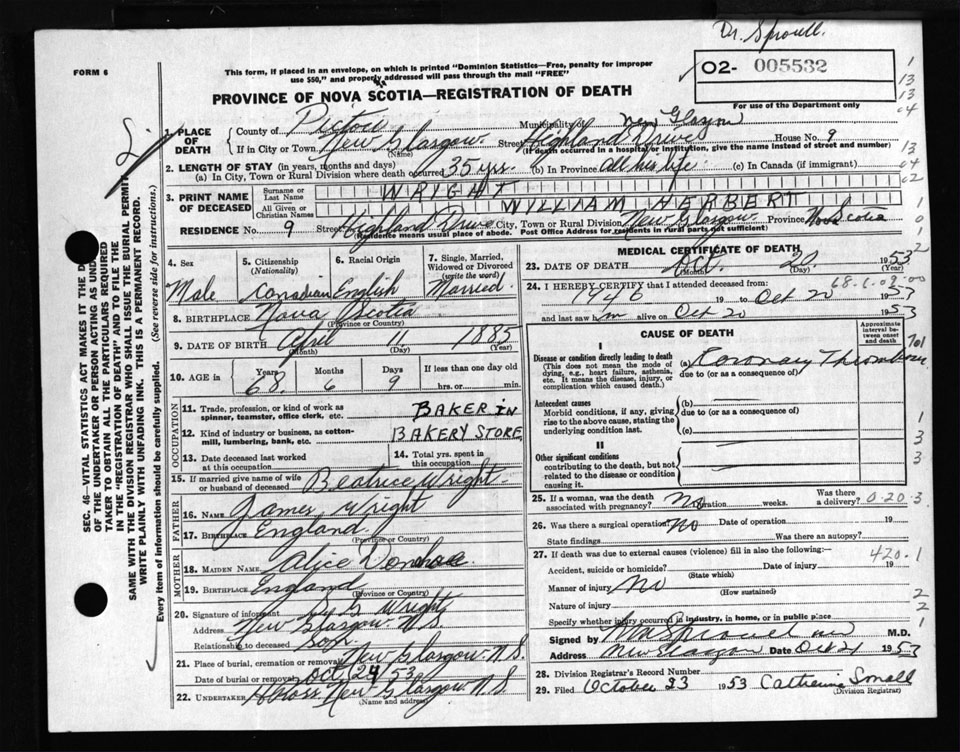 Dr. Sproull.
FORM 6
This form, if placed in an envelope, on which is printed "Dominion Statistics—Free, penalty for improper
use $50," and properly addressed will pass through the mail "FREE"
02- 005532
For use of the Department only
PROVINCE OF NOVA SCOTIA—REGISTRATION OF DEATH
1. PLACE OF DEATH
County of Pictou Municipality of New Glasgow
If in City or Town New Glasgow (Name) Street Highland Drive House No. 9
(If death occurred in a hospital or institution, give the name instead of street and number)
2. LENGTH OF STAY (in years, months and days)
(a) In City, Town or Rural Division where death occurred 35 yrs. (b) In Province all his life (c) In Canada (if immigrant)
3. PRINT NAME OF DECEASED
Surname or Last Name WRIGHT
All Given or Christian Names WILLIAM HERBERT
RESIDENCE No. 9 Street Highland Drive City, Town or Rural Division New Glasgow Province Nova Scotia
(Residence means usual place of abode. Post Office Address for residents in rural parts not sufficient)
4. Sex
Male
5. Citizenship (Nationality)
Canadian
6. Racial Origin
English
7. Single, Married, Widowed or Divorced (write the word)
Married
8. BIRTHPLACE Nova Scotia
(Province or Country)
9. DATE OF BIRTH April 11, 1885
(Month) (Day) (Year)
10. AGE in Years 68 Months 6 Days 9 If less than one day old
hrs. or min.
OCCUPATION
11. Trade, profession, or kind of work as spinner, teamster, office clerk, etc. BAKER IN
12. Kind of industry or business, as cotton-mill, lumbering, bank, etc. BAKERY STORE
13. Date deceased last worked at this occupation
14. Total yrs. spent in this occupation
15. If married give name of wife or husband of deceased Beatrice Wright
FATHER
16. Name James Wright
17. Birthplace England
(Province or Country)
MOTHER
18. MAIDEN NAME Alice
19. BIRTHPLACE England
(Province or Country)
20. Signature of informant Wright
Address New Glasgow N.S.
Relationship to deceased Son
21. Place of burial, cremation or removal New Glasgow N.S.
Date of burial or removal Oct 24 53
22. UNDERTAKER New Glasgow N.S.
(Name and address)
MEDICAL CERTIFICATE OF DEATH
23. DATE OF DEATH Oct. 20 1953
(Month) (Day) (Year)
24. I HEREBY CERTIFY that I attended deceased from:
1946 19 to Oct 20 1953
and last saw him alive on Oct 20 1953
CAUSE OF DEATH
Approximate interval between onset and death
I
Disease or condition directly leading to death
(This does not mean the mode of dying, e.g., heart failure, asthenia, etc. It means the disease, injury, or complication which caused death.)
(a) Coronary Thrombosis
due to (or as a consequence of)
Antecedent causes
Morbid conditions, if any, giving rise to the above cause, stating the underlying condition last.
(b)
due to (or as a consequence of)
(c)
II
Other significant conditions
contributing to the death, but not related to the disease or condition causing it.
25. If a woman, was the death associated with pregnancy? No Duration weeks. Was there a delivery?
26. Was there a surgical operation? No Date of operation 19
State findings Was there an autopsy?
27. If death was due to external causes (violence) fill in also the following:—
Accident, suicide or homicide? Date of injury 19
(State which)
Manner of injury No
(How sustained)
Nature of injury
Specify whether injury occurred in industry, in home, or in public place
Signed by M.D.
Address New Glasgow Date Oct 21 1953
28. Division Registrar's Record Number
29. Filed October 23 1953 Catherine Small
(Division Registrar)
SEC. 46—VITAL STATISTICS ACT MAKES IT THE
OF THE UNDERTAKER OR PERSON ACTING AS
TAKER TO OBTAIN ALL THE PARTICULARS REQUIRED
IN THE "REGISTRATION OF DEATH" AND TO FILE THE
SAME WITH THE DIVISION REGISTRAR WHO SHALL ISSUE THE BURIAL PERMIT
WRITE PLAINLY WITH UNFADING INK. THIS IS A PERMANENT RECORD.
Every item of information should be carefully supplied. (See reverse side for instructions.)